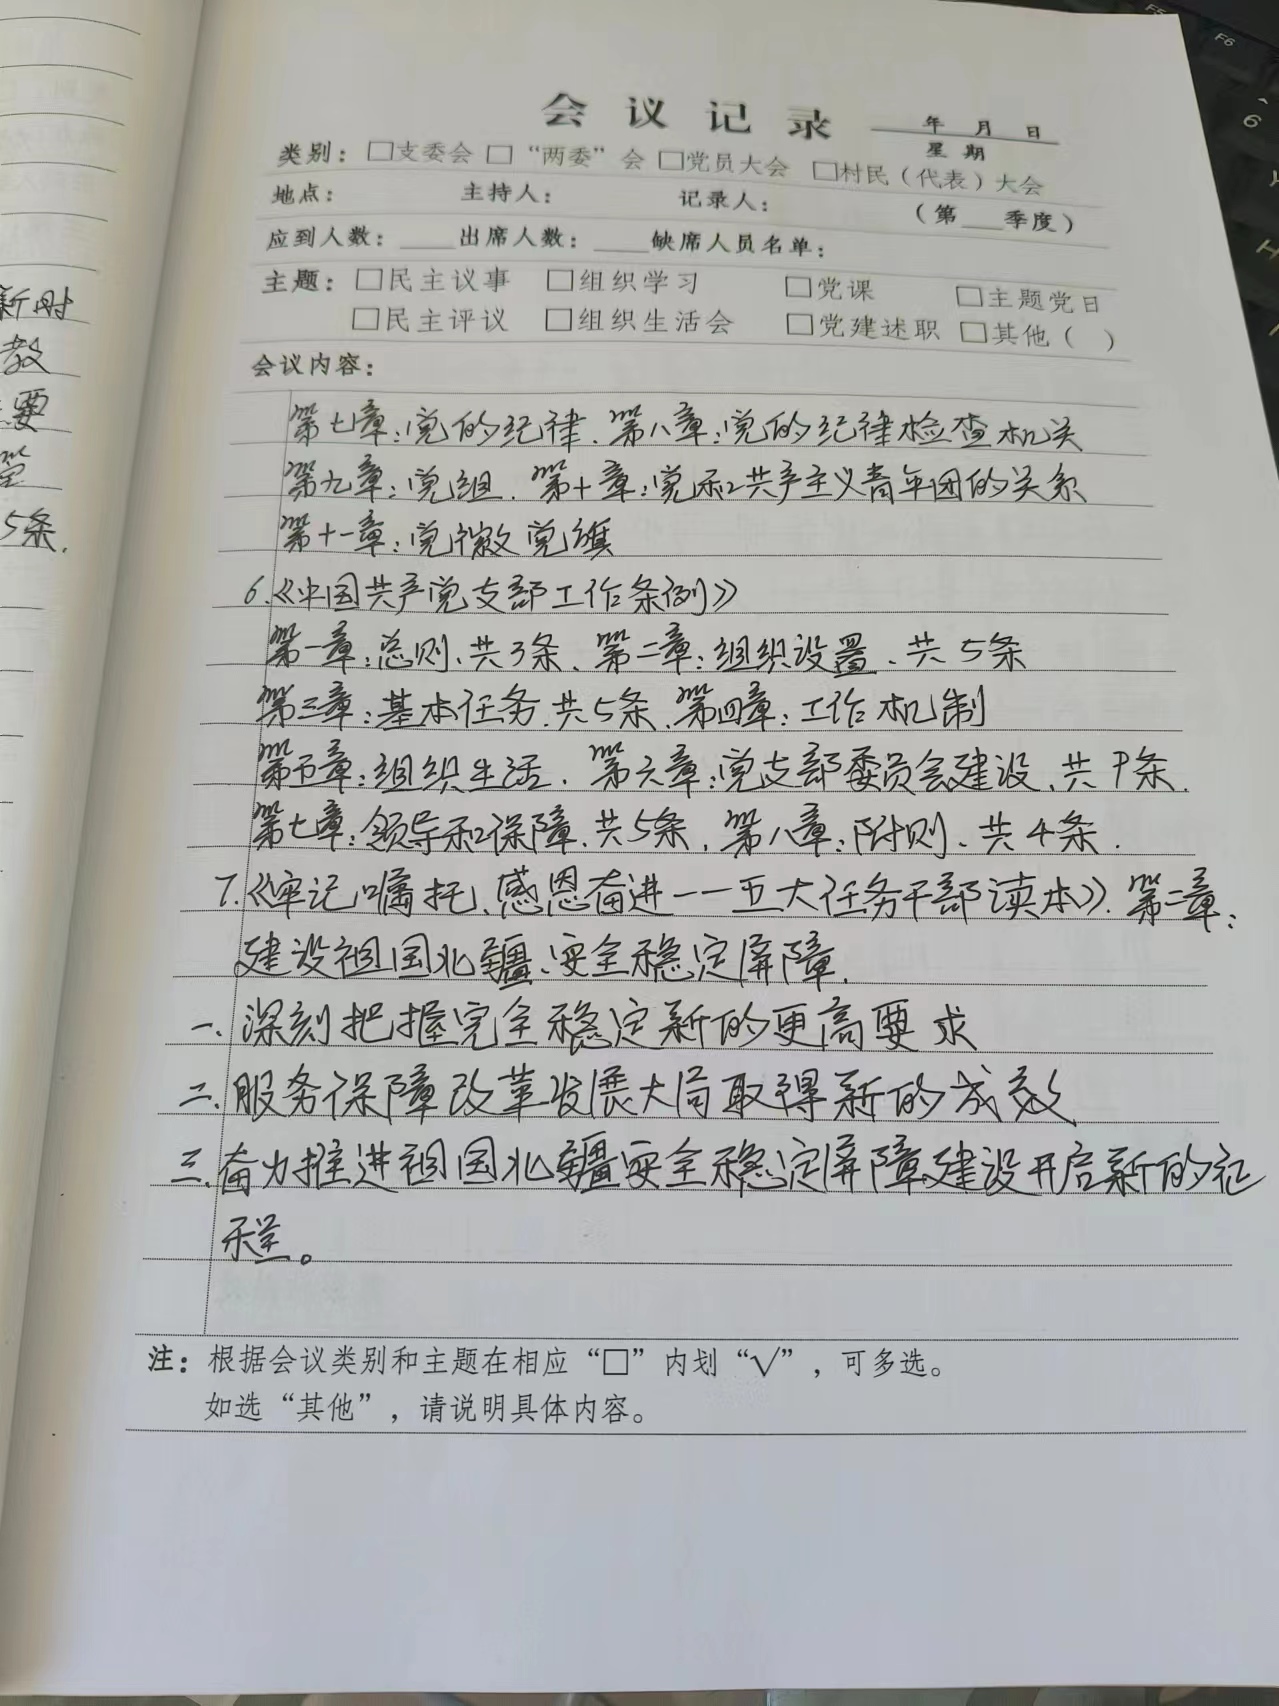 会议记录 年 月 日
星 期
类别：□支委会 □“两委”会 □党员大会 □村民（代表）大会
地点： 主持人： 记录人： （第__季度）
应到人数：____出席人数：____缺席人员名单：
主题：□民主议事 □组织学习 □党课 □主题党日
□民主评议 □组织生活会 □党建述职 □其他（ ）
会议内容：
第七章：党的纪律、第八章：党的纪律检查机关
第九章：党组、第十章：党和共产主义青年团的关系
第十一章：党徽党旗
6.《中国共产党支部工作条例》
第一章：总则、共3条、第二章：组织设置、共5条
第三章：基本任务、共5条、第四章：工作机制
第五章：组织生活、第六章：党支部委员会建设、共9条.
第七章：领导和保障、共5条，第八章：附则、共4条.
7.《牢记嘱托、感恩奋进——五大任务干部读本》.第二章：
建设祖国北疆、安全稳定屏障.
一、深刻把握完全稳定新的更高要求
二、服务保障改革发展大局取得新的成效
三、奋力推进祖国北疆安全稳定屏障建设开启新的征
程。
注：根据会议类别和主题在相应“□”内划“√”，可多选。
如选“其他”，请说明具体内容。
新时
教
要
5条.
F6
6